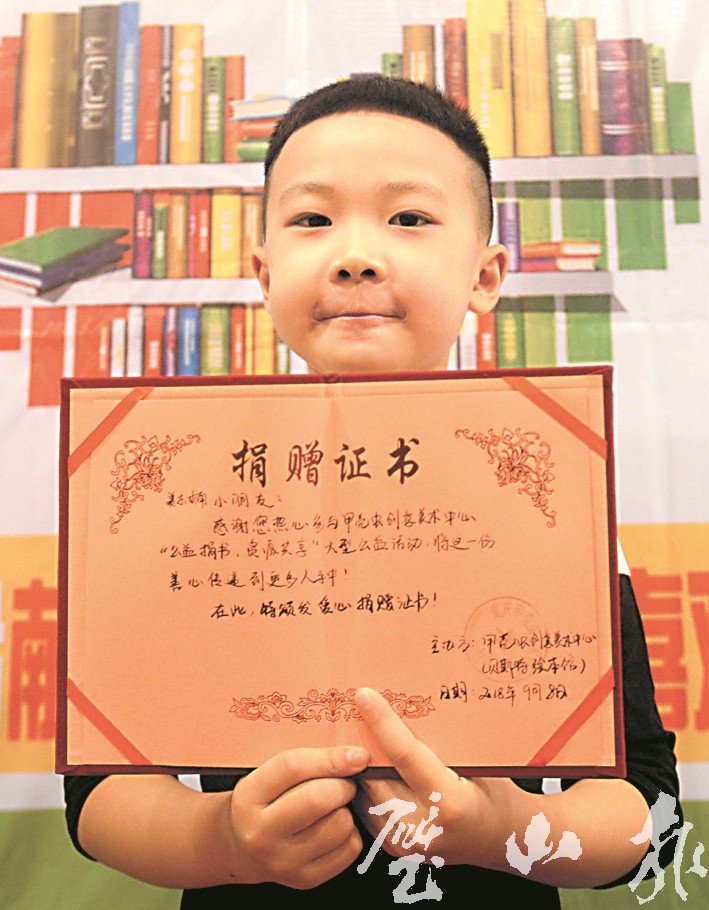 捐赠证书
小朋友：
感谢您热心参与甲壳虫创意美术中心
“公益捐书，资源共享”大型公益活动，将这一份
善心传递到更多人手中！
在此，特颁发爱心捐赠证书！
主办方：甲壳虫创意美术中心
（贝斯特绘本馆）
日期：2018年9月8日
璧山报